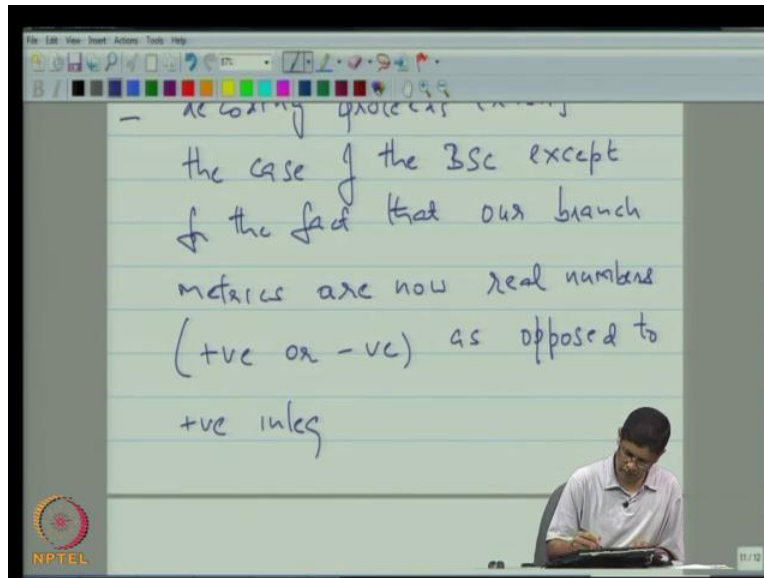 File Edit View Insert Actions Tools Help
the case of the BSC except
for the fact that our branch
metrics are now real numbers
(+ve or -ve) as opposed to
+ve integ
NPTEL
11 / 12